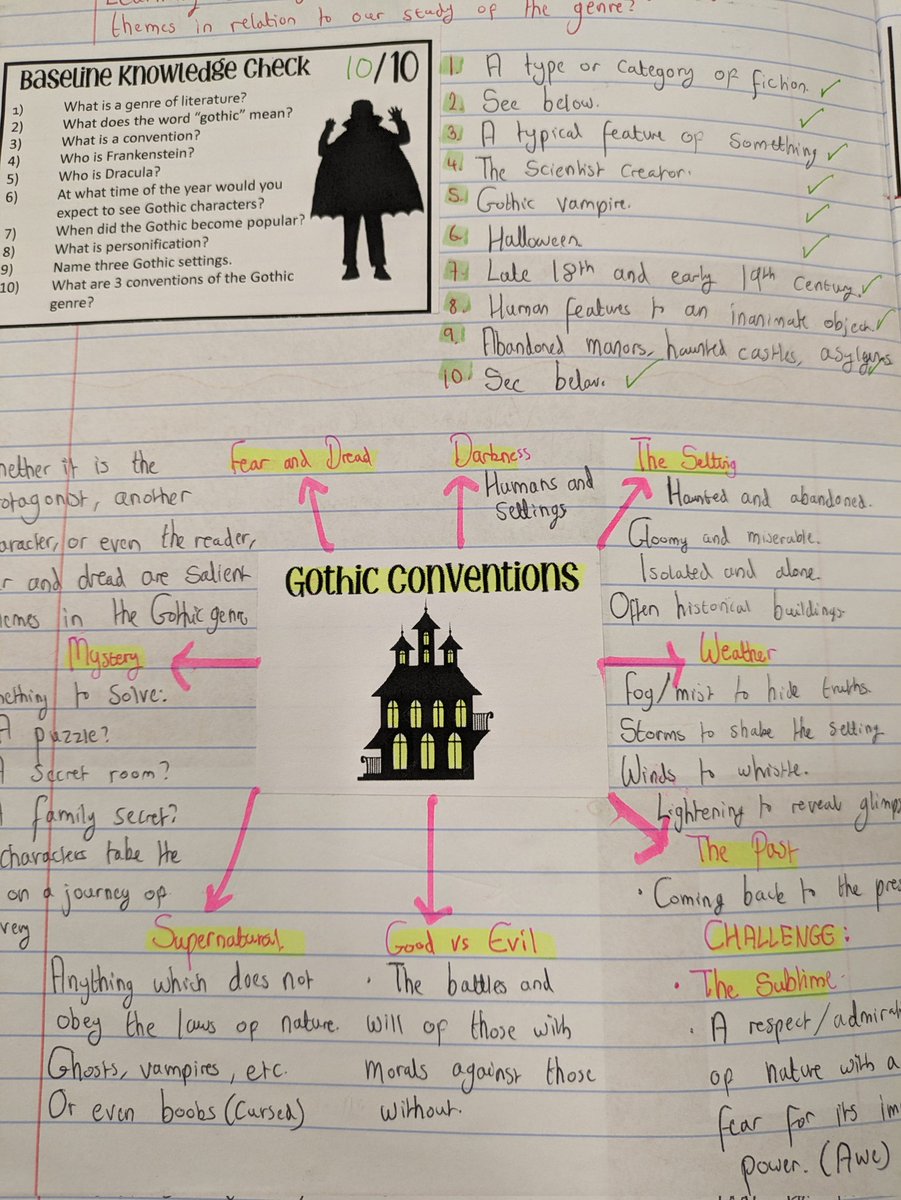 themes in relation to our study of the genre?
Baseline Knowledge Check 10/10
1) What is a genre of literature?
2) What does the word "gothic" mean?
3) What is a convention?
4) Who is Frankenstein?
5) Who is Dracula?
6) At what time of the year would you
expect to see Gothic characters?
7) When did the Gothic become popular?
8) What is personification?
9) Name three Gothic settings.
10) What are 3 conventions of the Gothic
genre?
1. A type or category of fiction.
2. See below.
3. A typical feature of something
4. The Scientist Creator.
5. Gothic vampire.
6. Halloween
7. Late 18th and early 19th Century.
8. Human features to an inanimate object.
9. Abandoned manors, haunted castles, asylums
10. See below.
Fear and Dread
hether it is the
otagonist, another
aracter, or even the reader,
r and dread are salient
emes in the Gothic genre
Darkness
Humans and
Settings
The Setting
Haunted and abandoned.
Gloomy and miserable.
Isolated and alone.
Often historical buildings.
Gothic Conventions
Mystery
nething to solve:
A puzzle?
A secret room?
A family secret?
characters take the
on a journey of
very
Weather
Fog/mist to hide truths.
Storms to shake the setting
Winds to whistle.
Lightening to reveal glimps
The Past
· Coming back to the pres
Supernatural
Anything which does not
obey the laws of nature.
Ghosts, vampires, etc.
Or even boobs (Cursed)
Good vs Evil
· The battles and
will of those with
morals against those
without.
CHALLENGE:
· The Sublime.
· A respect/admirat
of nature with a
fear for its im
power. (Awe)